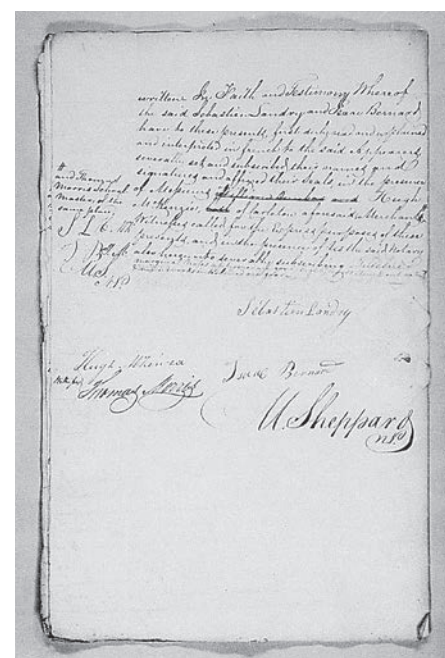 written In Faith and Testimony Whereof
the said Sebastien Landry and Isaac Bernard,
have to these presents, first duly read and explained
and interpreted in french to the said Appearers,
severally set and subscribed their names and
signatures and affixed their Seals, in the presence
of Messieurs and Hugh
McKenzie, of Carleton aforesaid Merchant
Witnesses called for the Express purposes of these
presents, and in the presence of Us the said Notary
also hereunto severally subscribing
#
and Thomas
Morris School
Master of the
same place
S L
U.S.
N.P.
Sébastien Landry
Hugh
Isaac Bernard
Witness
Thomas Morris
U. Sheppard
N.P.